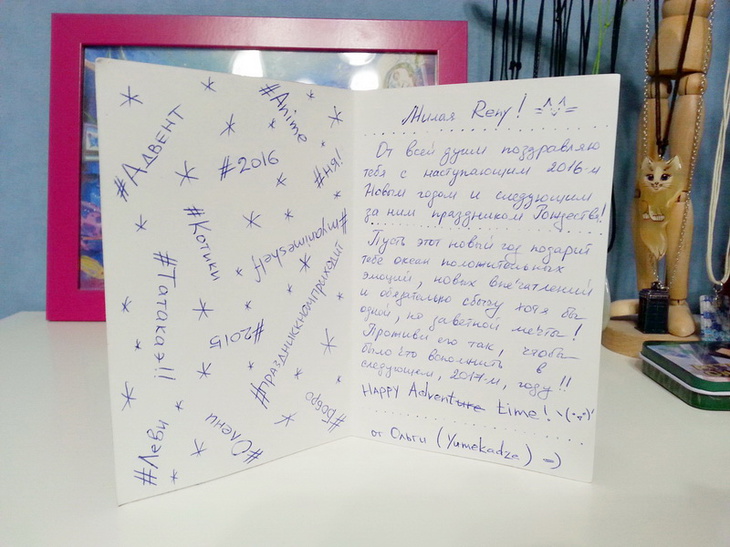 #Адвент
#Anime
#2016
#ня!
#Котики
#myanimeshelf
#Татакаэ!!
#2015
#праздниккномприходит
#Добро
#Олени
#Леви
Милая Reny! =^.^=
От всей души поздравляю
тебя с наступающим 2016-м
Новым годом и следующим
за ним праздником Рождества!
Пусть этот новый год подарит
тебе океан положительных
эмоций, новых впечатлений
и обязательно сбычу хотя бы
одной, но заветной мечты!
Проживи его так, чтобы
было что вспомнить в
следующем, 2017-м, году!!
HAPPY Adventure time!
от Ольги (Yumekadze) =)